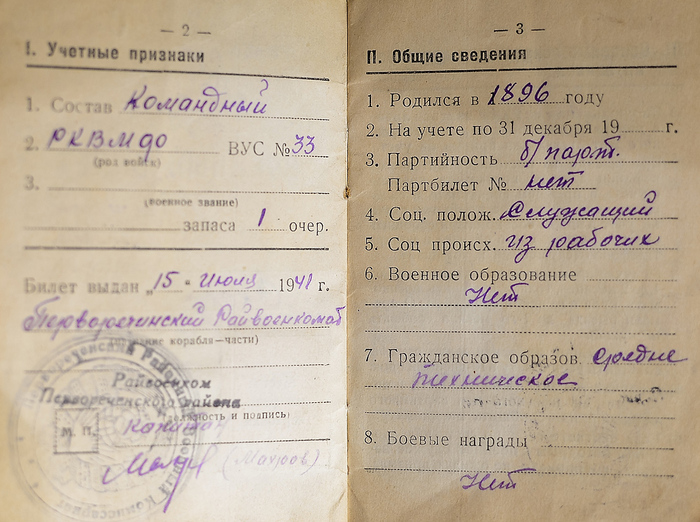 — 2 —
I. Учетные признаки
1. Состав Командный
2. РКВМдо ВУС № 33
(род войск)
3.
(военное звание)
запаса 1 очер.
Билет выдан „15 " Июля 1941 г.
Первореченский Райвоенкомат
(название корабля—части)
Райвоенком
Первореченского района
(должность и подпись)
М. П. Капитан
(Мазуров)
— 3 —
II. Общие сведения
1. Родился в 1896 году
2. На учете по 31 декабря 19 г.
3. Партийность б/парт.
Партбилет № нет
4. Соц. полож. Служащий
5. Соц проиcх. из рабочих
6. Военное образование
Нет
7. Гражданское образов. средне
техническое
8. Боевые награды
Нет